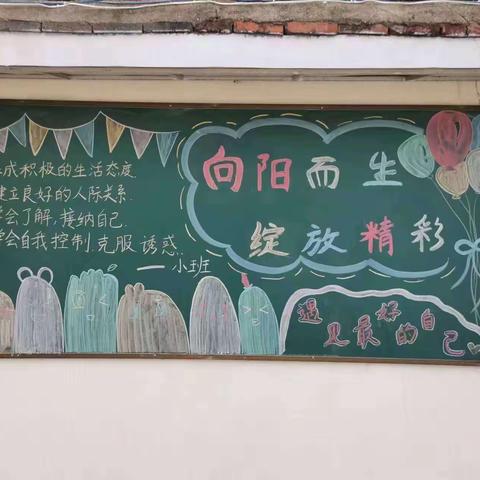 成积极的生活态度.
建立良好的人际关系.
学会了解,接纳自己.
学会自我控制.克服诱惑.
——小班
向阳而生
绽放精彩
遇见最好的自己